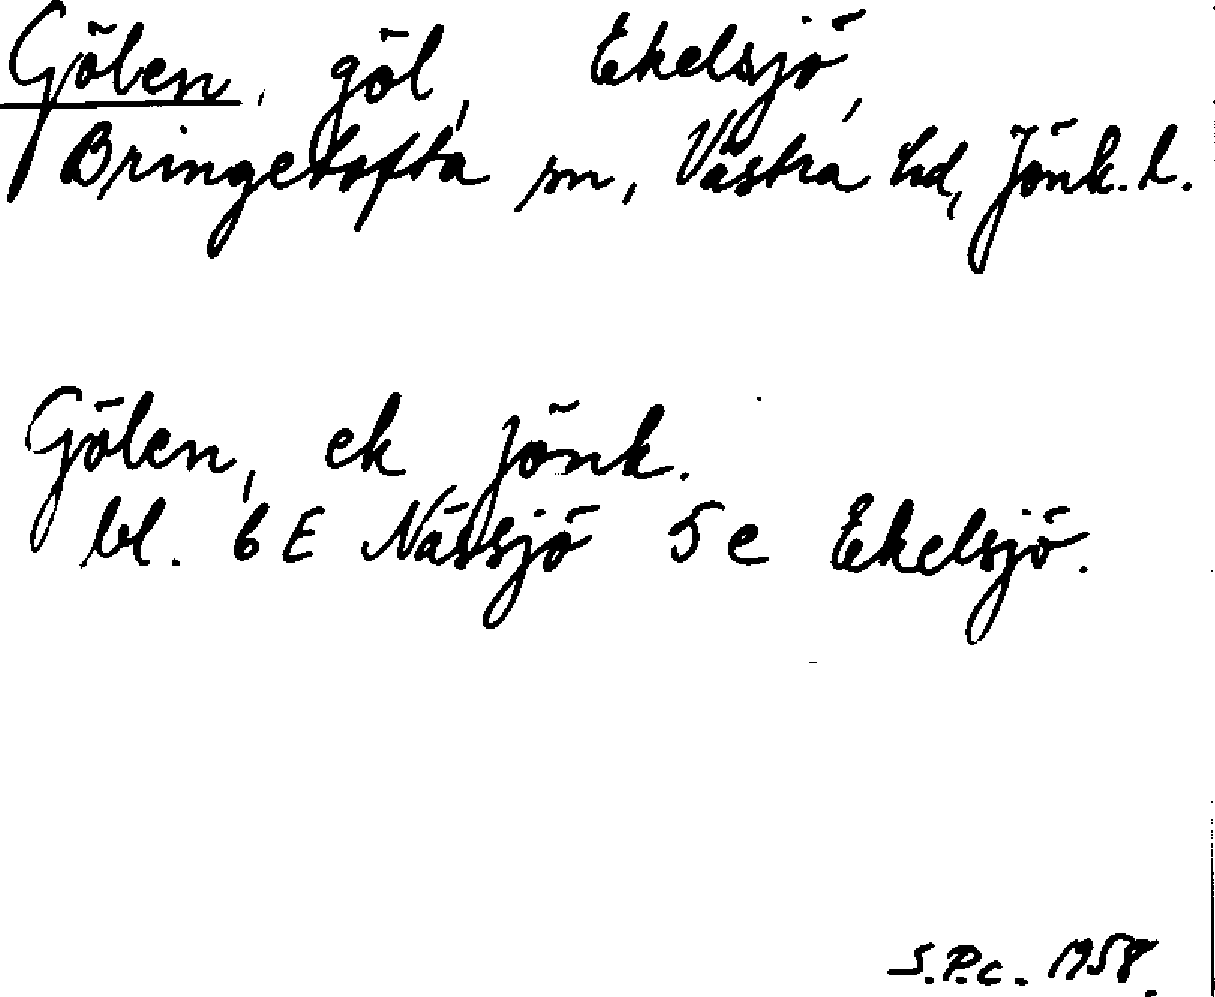 Gölen, göl, Ekelsjö,
Bringetofta sn, Västra hd, Jönk. l.
Gölen, ek Jönk.
bl. 6E Nässjö 5e Ekelsjö.
S.P.c. 1958.